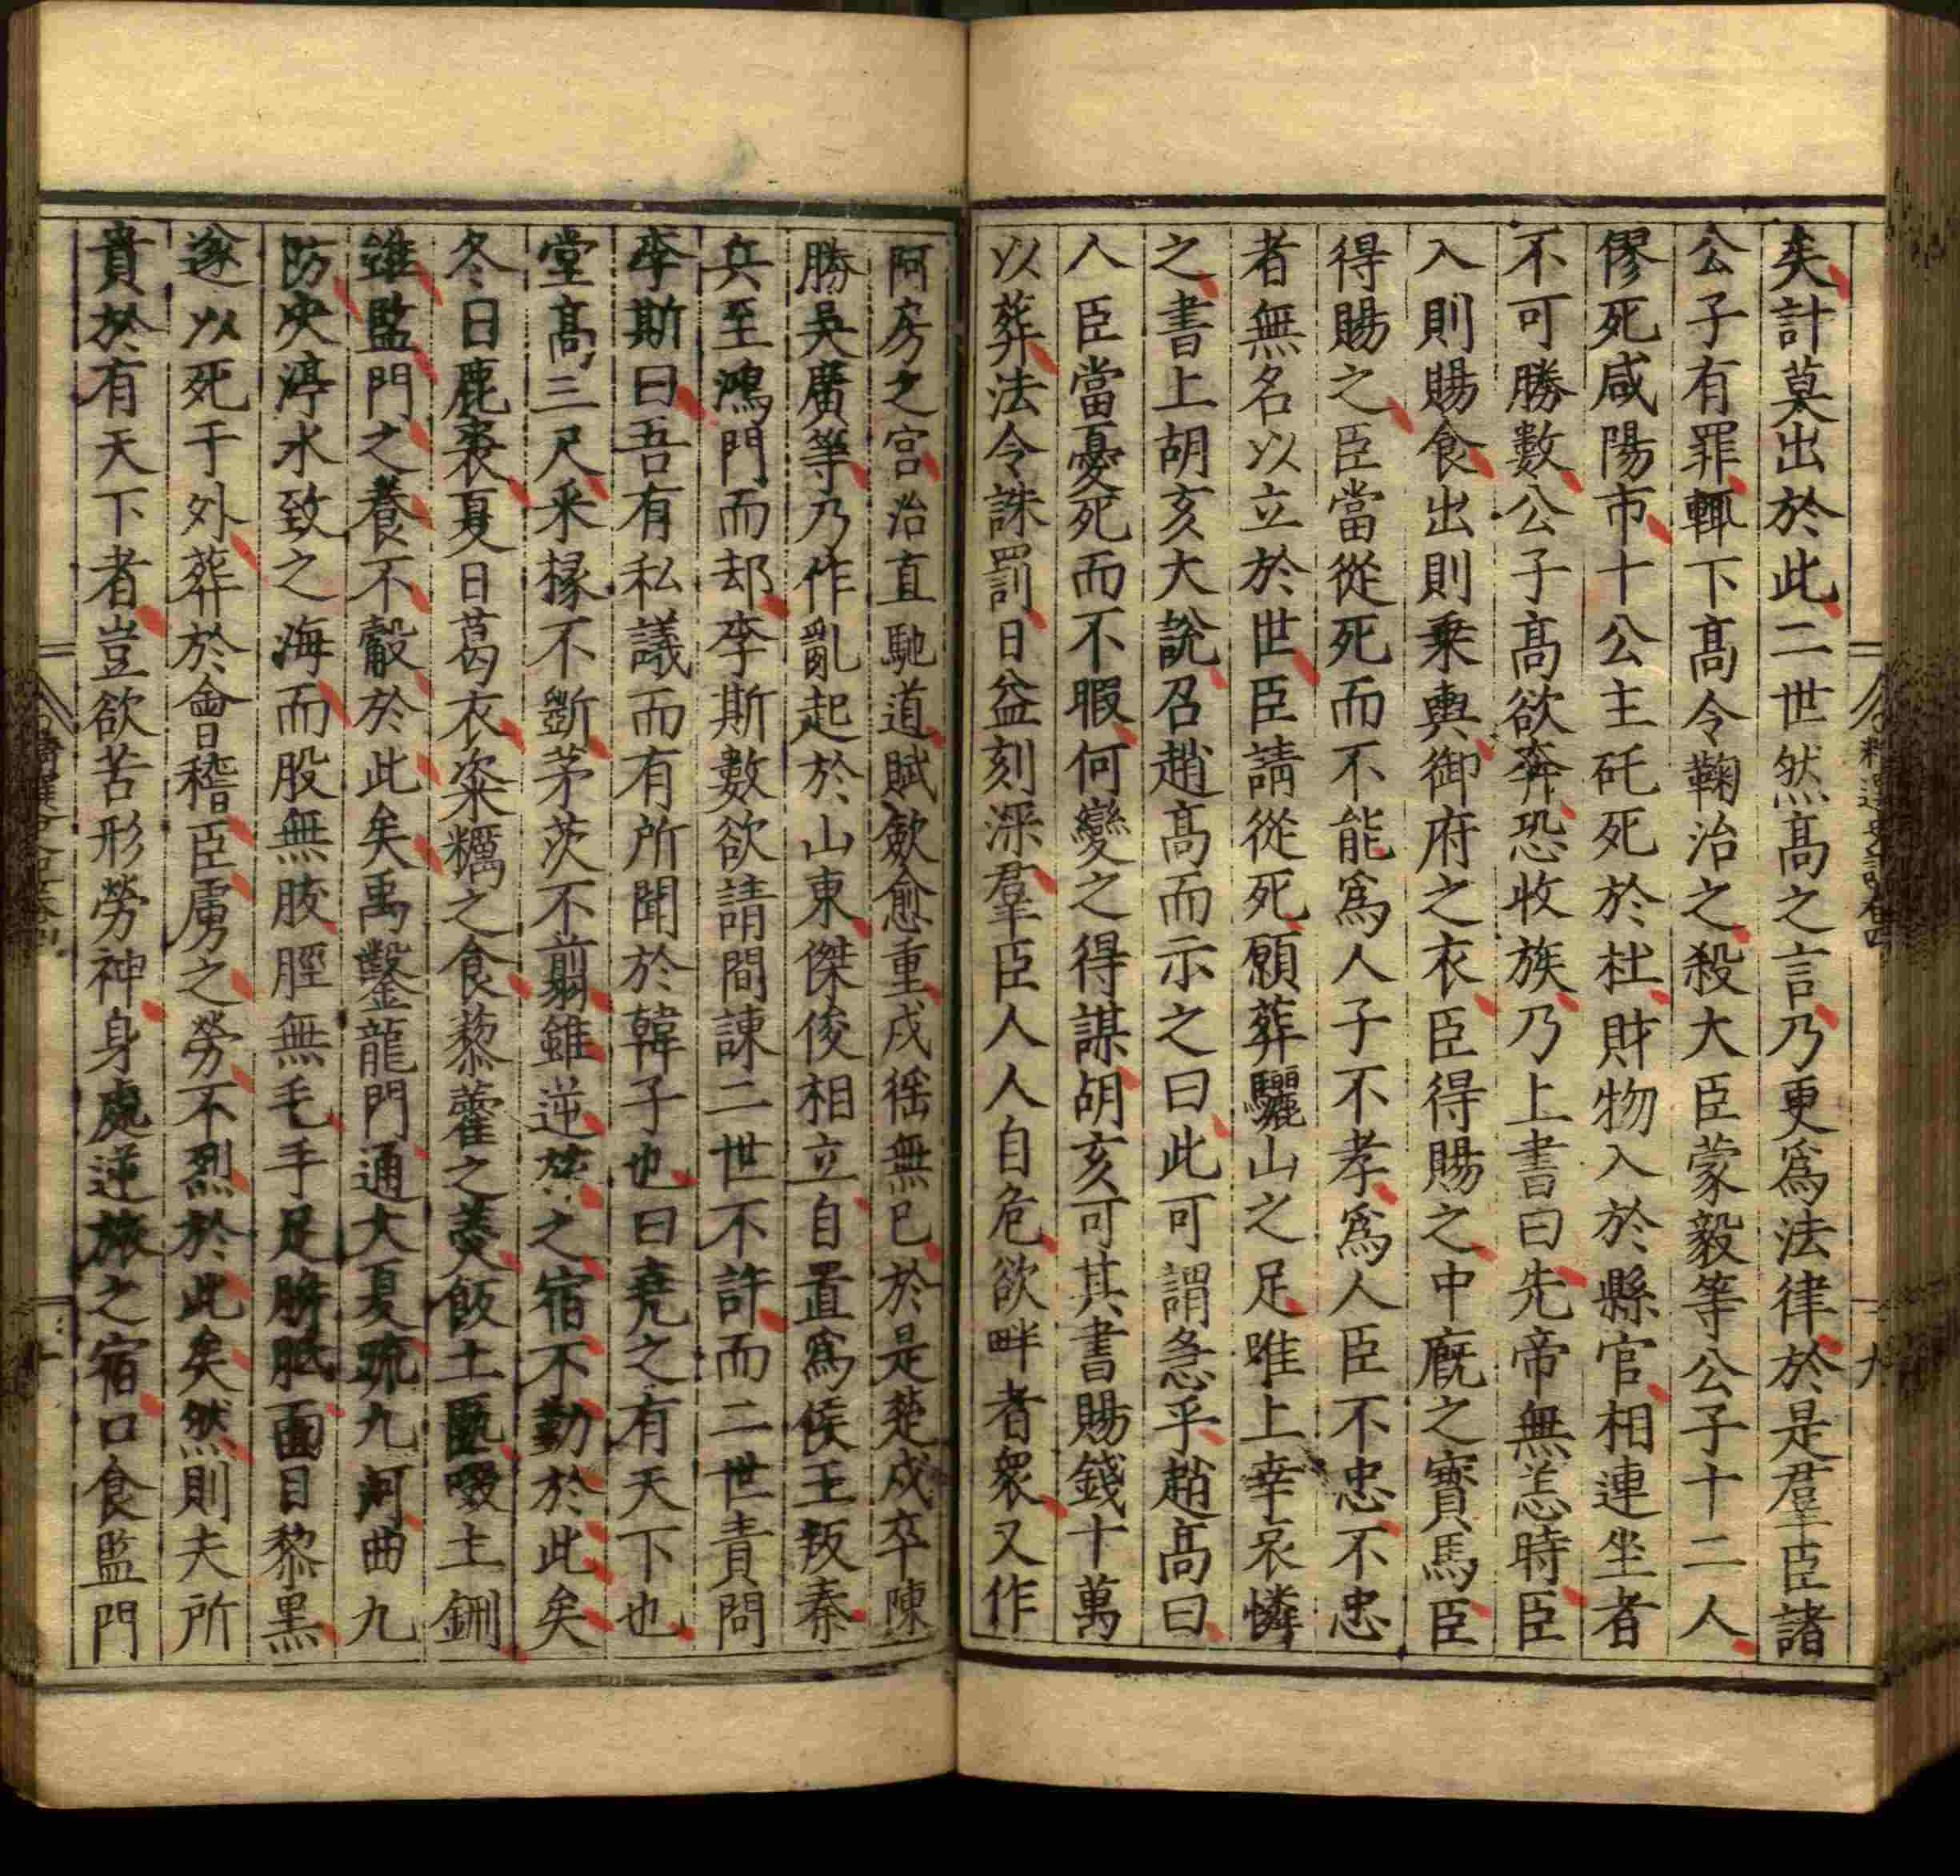 矣計莫出於此二世然高之言乃更爲法律於是羣臣諸
公子有罪輒下高令鞠治之殺大臣蒙毅等公子十二人
僇死咸陽市十公主矺死於杜財物入於縣官相連坐者
不可勝數公子高欲奔恐收族乃上書曰先帝無恙時臣
入則賜食出則乗輿御府之衣臣得賜之中廐之寳馬臣
得賜之臣當從死而不能爲人子不孝爲人臣不忠不忠
者無名以立於世臣請從死願葬驪山之足唯上幸哀憐
之書上胡亥大說召趙高而示之曰此可謂急乎趙高曰
人臣當憂死而不暇何變之得謀胡亥可其書賜錢十萬
以葬法令誅罰日益刻深羣臣人人自危欲畔者衆又作
阿房之宮治直馳道賦歛愈重戍徭無已於是楚戍卒陳
勝吳廣等乃作亂起於山東傑俊相立自置爲侯王叛秦
兵至鴻門而却李斯數欲請間諫二世不許而二世責問
李斯曰吾有私議而有所聞於韓子也曰堯之有天下也
堂高三尺采椽不斵茅茨不翦雖逆旅之宿不勤於此矣
冬日鹿裘夏日葛衣粢糲之食藜藿之羹飯土匭啜土鉶
雖監門之養不觳於此矣禹鑿龍門通大夏疏九河曲九
防决渟水致之海而股無胈脛無毛手足胼胝面目黎黒
遂以死于外葬於會稽臣虜之勞不烈於此矣然則夫所
貴於有天下者豈欲苦形勞神身處逆旅之宿口食監門
精選史記卷四
九